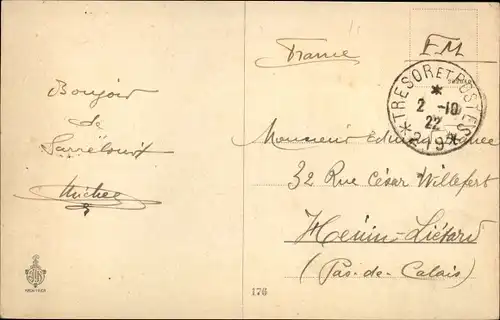 Bonjour
de
Sarrelouis
Michel
France
F M
TRESOR ET POSTES
*
2 -10
22
* 219 *
Monsieur
32 Rue César Willefert
Henin-Liétard
(Pas-de-Calais)
176